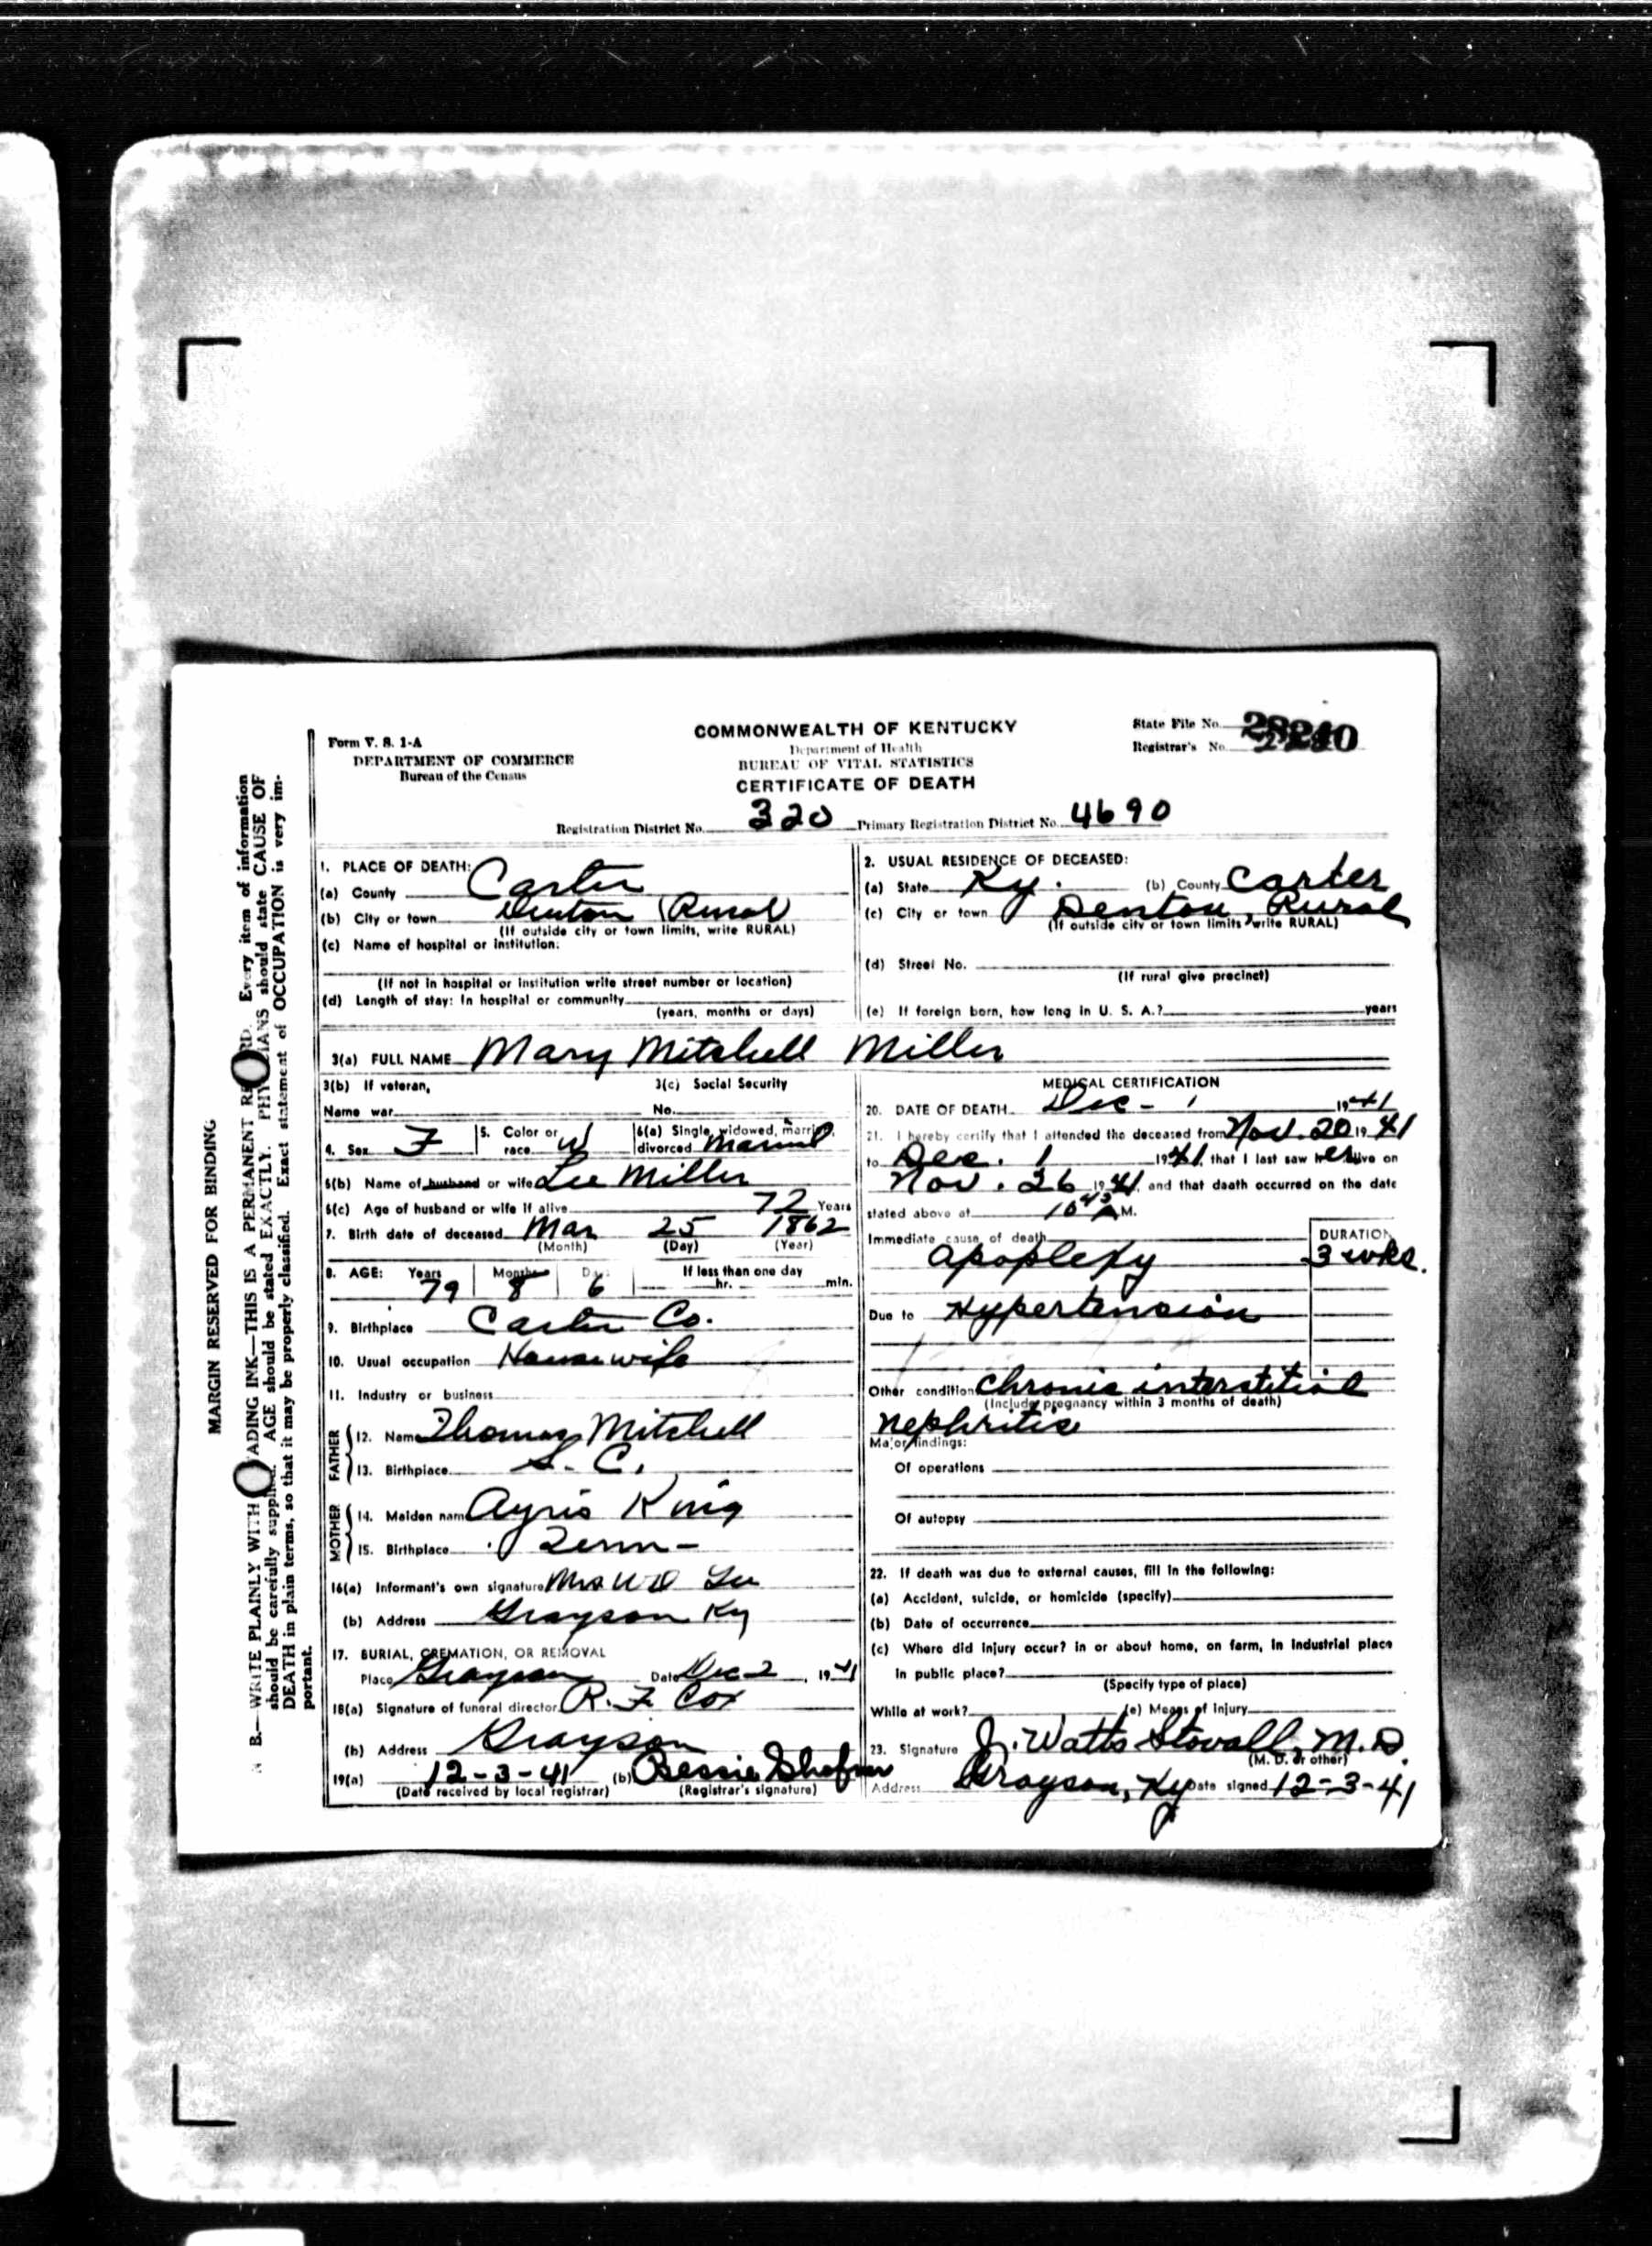 COMMONWEALTH OF KENTUCKY
Form V. S. 1-A
DEPARTMENT OF COMMERCE
Bureau of the Census
Department of Health
BUREAU OF VITAL STATISTICS
CERTIFICATE OF DEATH
State File No.
Registrar's No.
Registration District No. 320 Primary Registration District No. 4690
MARGIN RESERVED FOR BINDING
N B.—WRITE PLAINLY WITH ADING INK—THIS IS A PERMANENT RE RD. Every item of information
should be carefully supplied. AGE should be stated EXACTLY. PHY IANS should state CAUSE OF
DEATH in plain terms, so that it may be properly classified. Exact statement of OCCUPATION is very im-
portant.
1. PLACE OF DEATH:
(a) County Carter
(b) City or town Denton (Rural
(If outside city or town limits, write RURAL)
(c) Name of hospital or institution:
(If not in hospital or institution write street number or location)
(d) Length of stay: In hospital or community
(years, months or days)
2. USUAL RESIDENCE OF DECEASED:
(a) State Ky. (b) County Carter
(c) City or town Denton, Rural
(If outside city or town limits write RURAL)
(d) Street No.
(If rural give precinct)
(e) If foreign born, how long in U. S. A.? years
3(a) FULL NAME Mary Mitchell Miller
3(b) If veteran, 3(c) Social Security
Name war No.
4. Sex F 5. Color or race W 6(a) Single, widowed, married, divorced Married
6(b) Name of husband or wife Lee Miller
6(c) Age of husband or wife if alive 72 Years
7. Birth date of deceased Mar 25 1862
(Month) (Day) (Year)
8. AGE: Years Months Days If less than one day
79 8 6 hr. min.
9. Birthplace Carter Co.
10. Usual occupation Housewife
11. Industry or business
FATHER
12. Name Thomas Mitchell
13. Birthplace S. C.
MOTHER
14. Maiden name Ayris King
15. Birthplace Tenn-
16(a) Informant's own signature Mrs W D Lee
(b) Address Grayson Ky
17. BURIAL, CREMATION, OR REMOVAL
Place Grayson Date Dec 2, 1941
18(a) Signature of funeral director R. F. Cox
(b) Address Grayson
19(a) 12-3-41 (b) Bessie
(Date received by local registrar) (Registrar's signature)
MEDICAL CERTIFICATION
20. DATE OF DEATH Dec - 1 1941
21. I hereby certify that I attended the deceased from Nov. 20 1941
to Dec. 1 1941, that I last saw her alive on
Nov. 26 1941, and that death occurred on the date
stated above at 10 45 A M.
Immediate cause of death DURATION
apoplexy 3 wks.
Due to Hypertension
Other condition Chronic interstitial
(Include pregnancy within 3 months of death)
nephritis
Major findings:
Of operations
Of autopsy
22. If death was due to external causes, fill in the following:
(a) Accident, suicide, or homicide (specify)
(b) Date of occurrence
(c) Where did injury occur? in or about home, on farm, in industrial place
in public place?
(Specify type of place)
While at work? (e) Means of injury
23. Signature J. Watts Stovall, M. D.
(M. D. or other)
Address Grayson, Ky Date signed 12-3-41